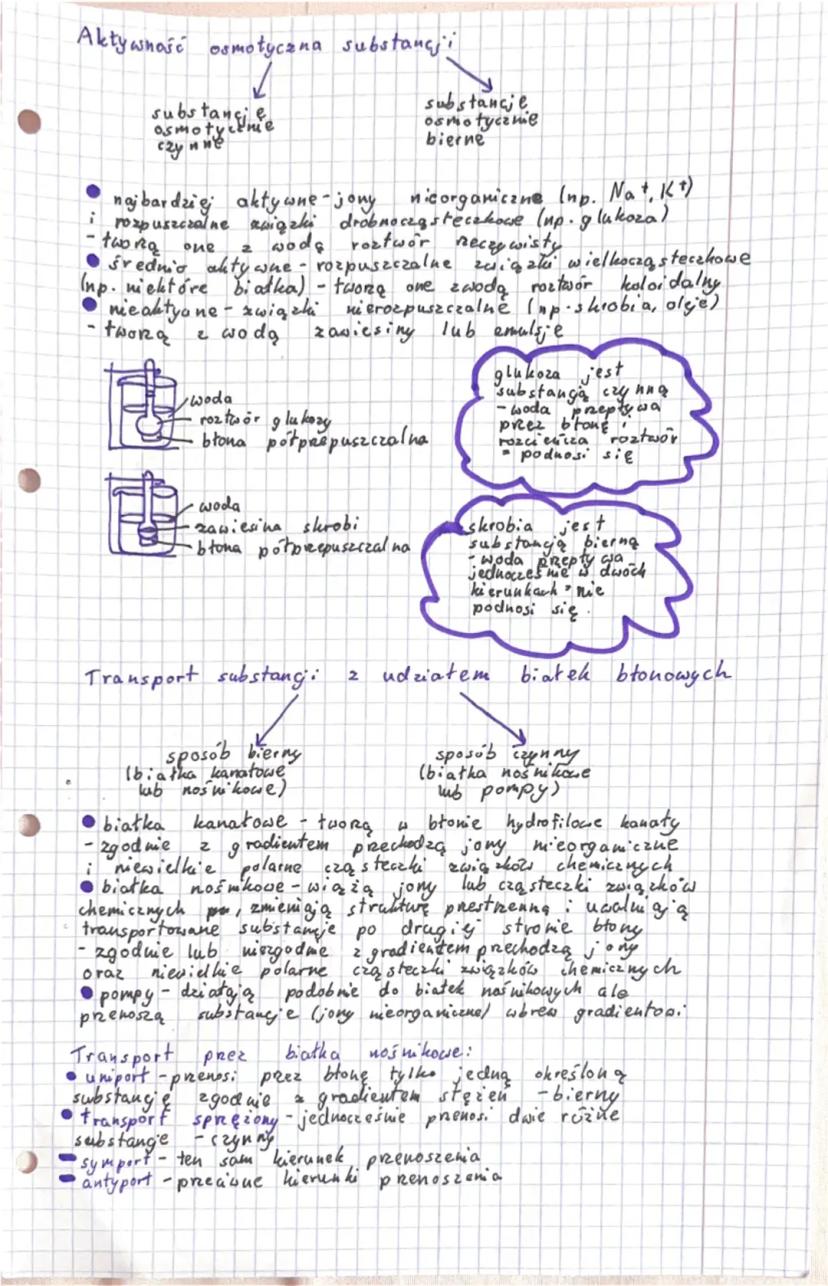 Aktywność osmotyczna substancji
substancje
osmotycznie
czynne
substancje
osmotycznie
bierne
najbardziej aktywne - jony nieorganiczne (np. Na+, K+)
i rozpuszczalne związki drobnocząsteczkowe (np. glukoza)
- tworzą one z wodą roztwór rzeczywisty
średnio aktywne - rozpuszczalne związki wielkocząsteczkowe
(np. niektóre białka) - tworzą one z wodą roztwór koloidalny
nieaktywne - związki nierozpuszczalne (np. skrobia, oleje)
- tworzą z wodą zawiesiny lub emulsje
woda
roztwór glukozy
błona półprzepuszczalna
glukoza jest
substancją czynną
- woda przepływa
przez błonę i
rozcieńcza roztwór
= podnosi się
woda
zawiesina skrobi
błona półprzepuszczalna
skrobia jest
substancją bierną
- woda przepływa
jednocześnie w dwóch
kierunkach = nie
podnosi się.
Transport substancji z udziałem białek błonowych
sposób bierny
(białka kanałowe
lub nośnikowe)
sposób czynny
(białka nośnikowe
lub pompy)
białka kanałowe - tworzą w błonie hydrofilowe kanały
- zgodnie z gradientem przechodzą jony nieorganiczne
i niewielkie polarne cząsteczki związków chemicznych
białka nośnikowe - wiążą jony lub cząsteczki związków
chemicznych, zmieniają strukturę przestrzenną i uwalniają
transportowane substancje po drugiej stronie błony
- zgodnie lub niezgodnie z gradientem przechodzą jony
oraz niewielkie polarne cząsteczki związków chemicznych
pompy - działają podobnie do białek nośnikowych ale
przenoszą substancje (jony nieorganiczne) wbrew gradientowi
Transport przez białka nośnikowe:
uniport - przenosi przez błonę tylko jedną określoną
substancję zgodnie z gradientem stężeń - bierny
transport sprzężony - jednocześnie przenosi dwie różne
substancje - czynny
symport - ten sam kierunek przenoszenia
antyport - przeciwne kierunki przenoszenia